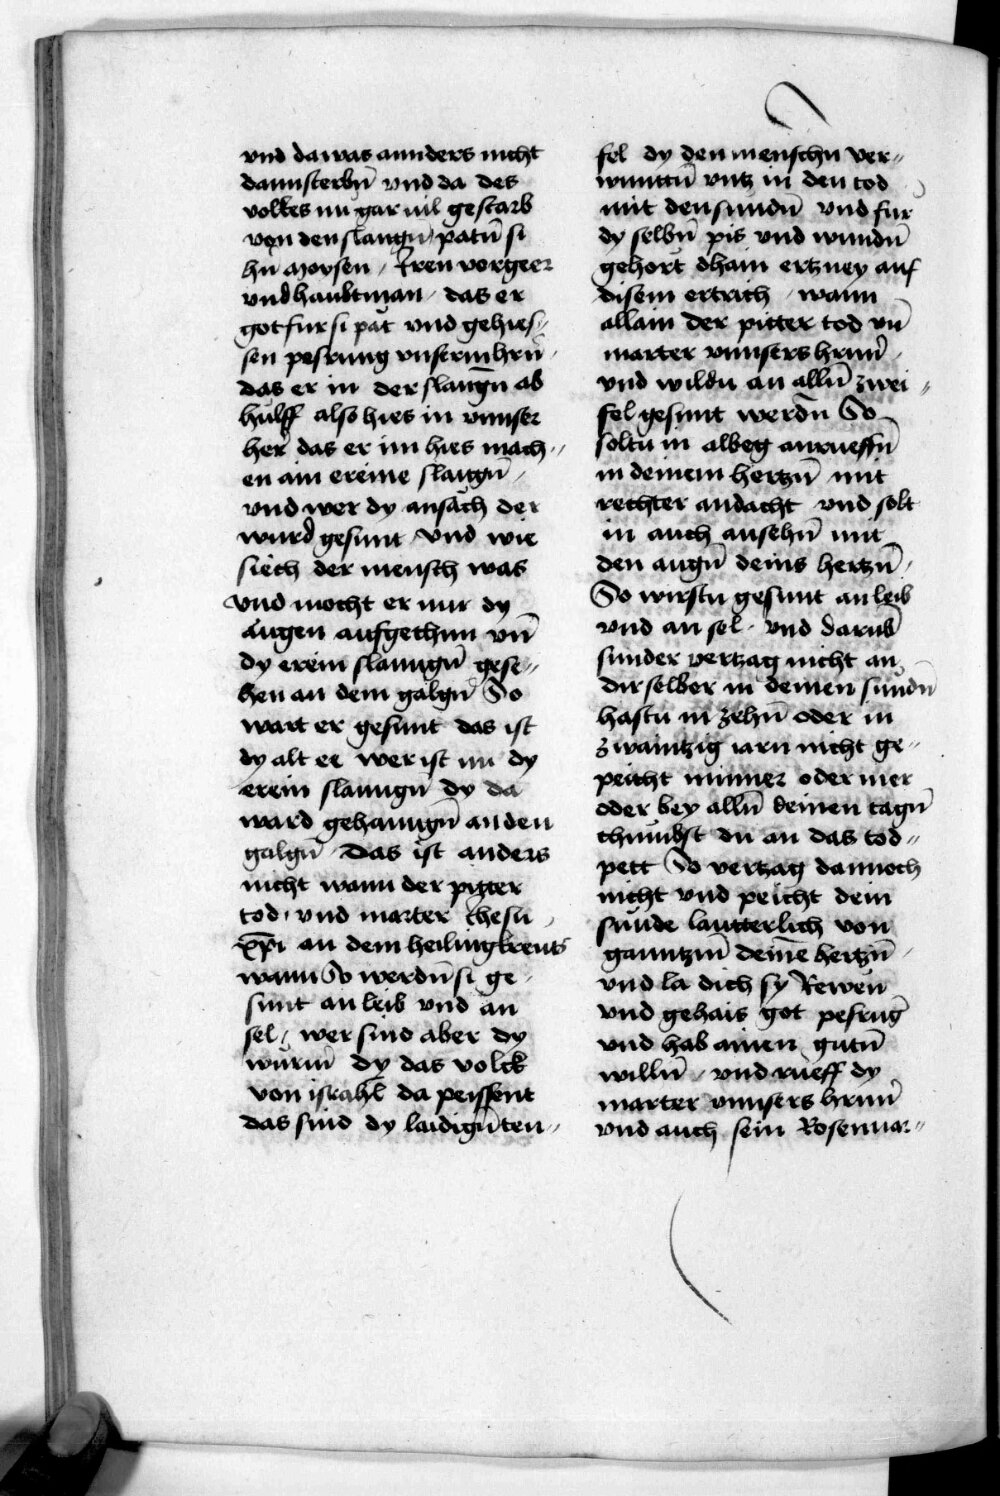 vnd da was annders nicht
dann sterbn̄ vnd da des
volkes nu gar vil gestarb
von den slangn̄ patn̄ si
hn̄ Moysen / Iren vorgeer
vnd haubtman / das er
got fur si pat vnd gehies //
sen pesrung vnserm hrn̄ /
das er in der slangn̄ ab
hulff also hies in vnnser
her das er im hies mach //
en ain ereine slangn̄ /
vnd wer dy ansach der
wurd gesunt vnd wie
siech der mensch was
vnd mocht er nur dy
augen aufgethun vn̄
dy erein slanngn̄ gese //
hen an dem galgn̄ So
wart er gesunt das ist
dy alt ee wer ist nu dy
erein slanngn̄ dy da
ward gehanngn̄ an den
galgn̄ / Das ist anders
nicht wann der pitter
tod / vnd marter Ihesu /
xp̄i an dem heiling kreuts
wann So werdn̄ si ge /
sunt an leib vnd an
sel / wer sind aber dy
würm̄ dy das volck
von israhl̄ da peissent
das sind dy laidign̄ ten //
fel dy den menschn ver //
wunttn̄ vntz in den tod
mit den sundn̄ vnd fur
dy selbn̄ pis vnd wundn̄
gehort dhain ertzney auf
disem ertrich / wann
allain der pitter tod vn̄
marter vnnsers hrnn̄ /
vnd wildu an alln̄ zwei //
fel gesunt werdn̄ So
soltu in albeg anrueffn̄
in deinem hertzn̄ mit
rechter andacht vnd solt
in auch ansehn̄ mit
den augn̄ deins hertzn̄ /
So wirstu gesunt an leib
vnd an sel / vnd darub̄
sunder vertzag nicht an
dir selber in deinen sundn̄
hastu in zehn̄ oder in
zwaintzig iarn nicht ge //
peicht minner oder mer
oder bey alln̄ deinen tagn̄
chumbst du an das tod //
pett So vertzag dannoch
nicht vnd peicht dein
sunde lautterlich von
ganntzm̄ deinē hertzn̄ /
vnd la dich sy Rewen
vnd gehais got pesruḡ
vnd hab ainen gutn̄
willn̄ / vnd rueff dy
marter vnnsers hrnn̄
vnd auch sein Rosenuar //